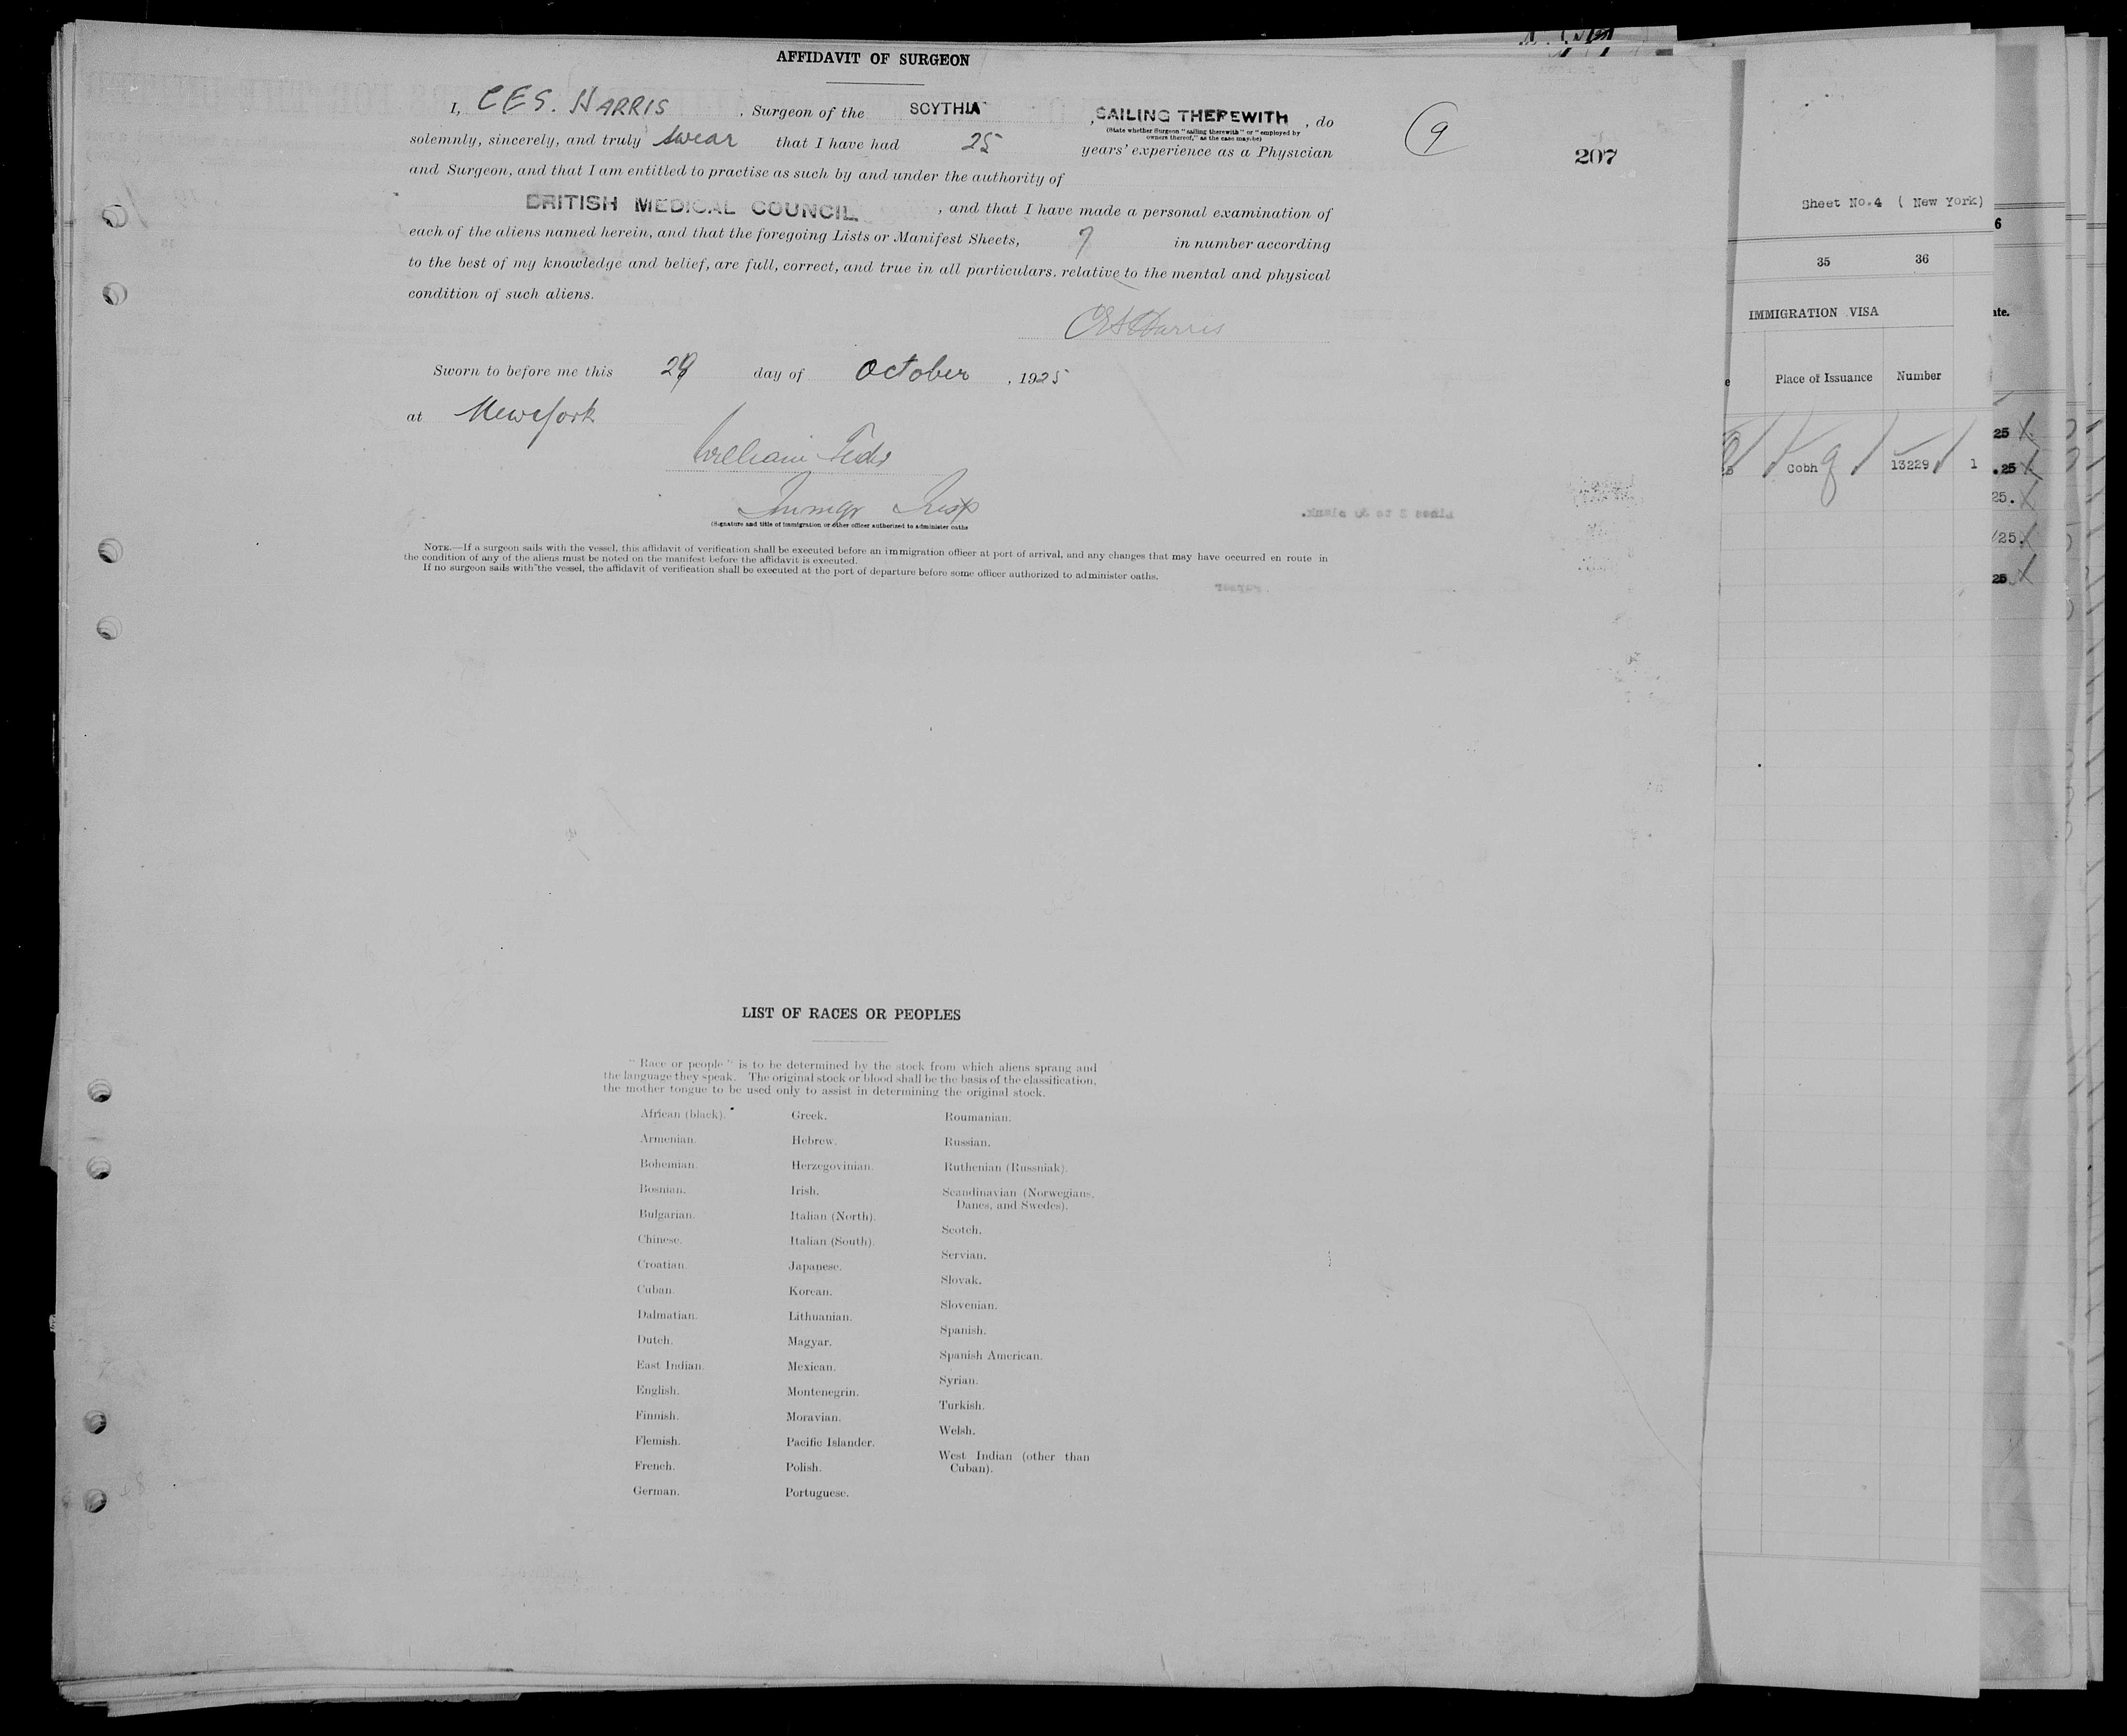 AFFIDAVIT OF SURGEON
I, C E S. HARRIS, Surgeon of the SCYTHIA, SAILING THEREWITH, do
(State whether Surgeon "sailing therewith" or "employed by
owners thereof," as the case may be)
solemnly, sincerely, and truly swear that I have had 25 years' experience as a Physician
and Surgeon, and that I am entitled to practise as such by and under the authority of
BRITISH MEDICAL COUNCIL, and that I have made a personal examination of
each of the aliens named herein, and that the foregoing Lists or Manifest Sheets, 7 in number according
to the best of my knowledge and belief, are full, correct, and true in all particulars, relative to the mental and physical
condition of such aliens.
CES Harris
Sworn to before me this day of October, 1925
at New York
William
Immgr Insp
(Signature and title of immigration or other officer authorized to administer oaths
NOTE.—If a surgeon sails with the vessel, this affidavit of verification shall be executed before an immigration officer at port of arrival, and any changes that may have occurred en route in
the condition of any of the aliens must be noted on the manifest before the affidavit is executed.
If no surgeon sails with the vessel, the affidavit of verification shall be executed at the port of departure before some officer authorized to administer oaths.
9
207
LIST OF RACES OR PEOPLES
"Race or people" is to be determined by the stock from which aliens sprang and
the language they speak. The original stock or blood shall be the basis of the classification,
the mother tongue to be used only to assist in determining the original stock.
African (black).
Armenian.
Bohemian.
Bosnian.
Bulgarian.
Chinese.
Croatian.
Cuban.
Dalmatian.
Dutch.
East Indian.
English.
Finnish.
Flemish.
French.
German.
Greek.
Hebrew.
Herzegovinian.
Irish.
Italian (North).
Italian (South).
Japanese.
Korean.
Lithuanian.
Magyar.
Mexican.
Montenegrin.
Moravian.
Pacific Islander.
Polish.
Portuguese.
Roumanian.
Russian.
Ruthenian (Russniak).
Scandinavian (Norwegians,
Danes, and Swedes).
Scotch.
Servian.
Slovak.
Slovenian.
Spanish.
Spanish American.
Syrian.
Turkish.
Welsh.
West Indian (other than
Cuban).
Sheet No.4 ( New York)
35 36
IMMIGRATION VISA
Place of Issuance Number
Cobh 13229 1
6
ate.
25
.25
25.
/25.
25